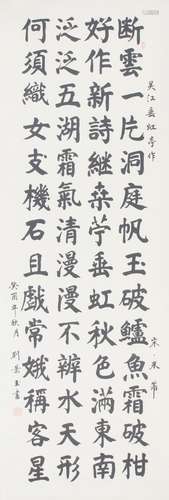 吳江垂虹亭作 宋·米芾
断雲一片洞庭帆玉破鱸魚霜破柑
好作新詩継桑苧垂虹秋色滿東南
泛泛五湖霜氣清漫漫不辨水天形
何須織女支機石且戲常娥稱客星
癸酉年秋月 劉